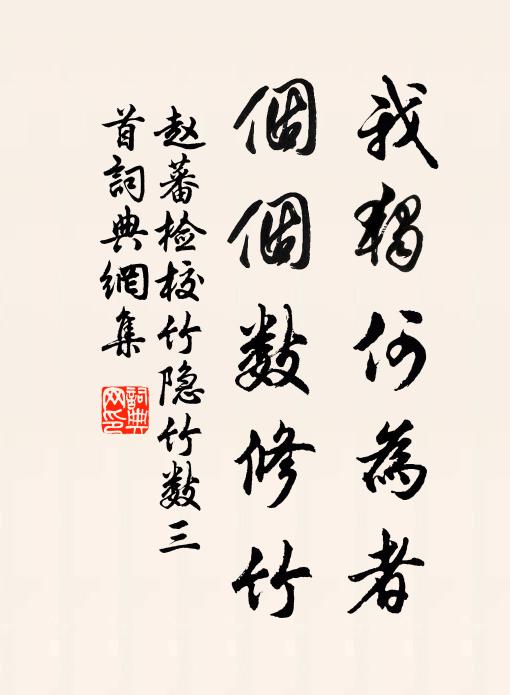 我獨何為者
個個數修竹
赵蕃檢校竹隐竹數三
首詞典網集
詞典
网印